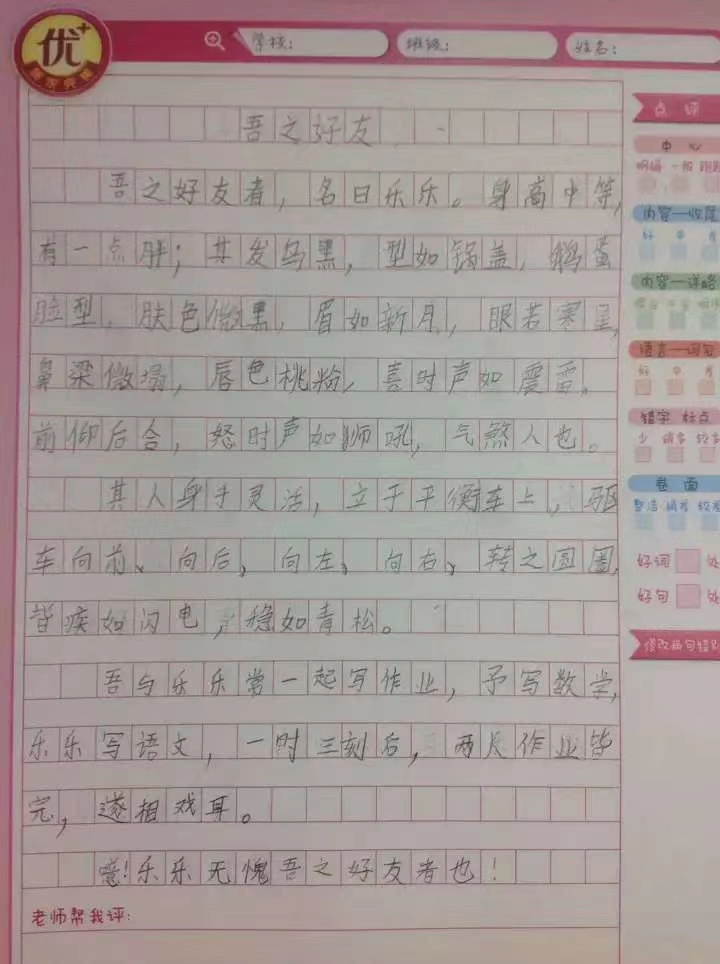 优+
学校:
班级:
姓名:
吾之好友
吾之好友者，名曰乐乐。身高中等，
有一点胖；其发乌黑，型如锅盖，鹅蛋
脸型，肤色微黑，眉如新月，眼若寒星，
鼻梁微塌，唇色桃粉，喜时声如震雷，
前仰后合，怒时声如狮吼，气煞人也。
其人身手灵活，立于平衡车上，驱
车向前、向后、向左、向右、转之圆圈，
皆疾如闪电，稳如青松。
吾与乐乐常一起写作业，予写数学，
乐乐写语文，一时三刻后，两人作业皆
完，遂相戏耳。
噫！乐乐无愧吾之好友者也！
老师帮我评:
点评
中心
明确 一般
内容—收尾
好 中
内容—详略
语言—词句
好 中
错字 标点
少 稍多 较多
卷面
整洁
好词 处
好句 处